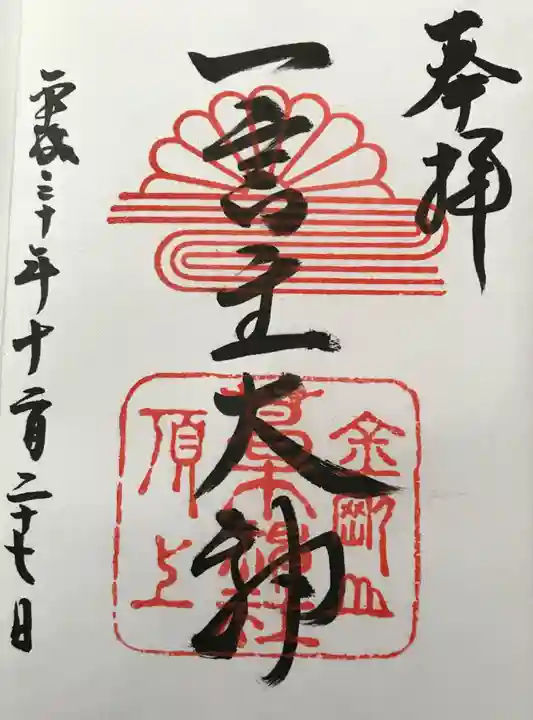 奉拝
一言主大神
金剛山
葛木神社
頂上
平成三十年十二月二十七日